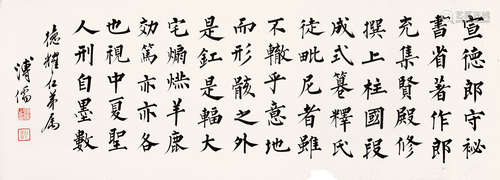 宣德郎守祕
書省著作郎
充集賢殿修
撰上柱國段
成式纂釋氏
徒毗尼者雖
不轍乎意地
而形骸之外
是釭是輻大
宅煽燃羊康
効篤亦亦各
也視中夏聖
人刑自墨數
德耀仁弟属
溥儒